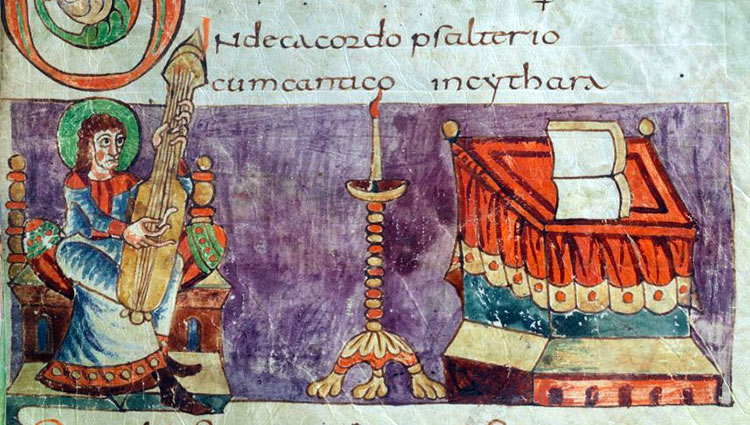 Indecacordo psalterio
cumcantico incythara